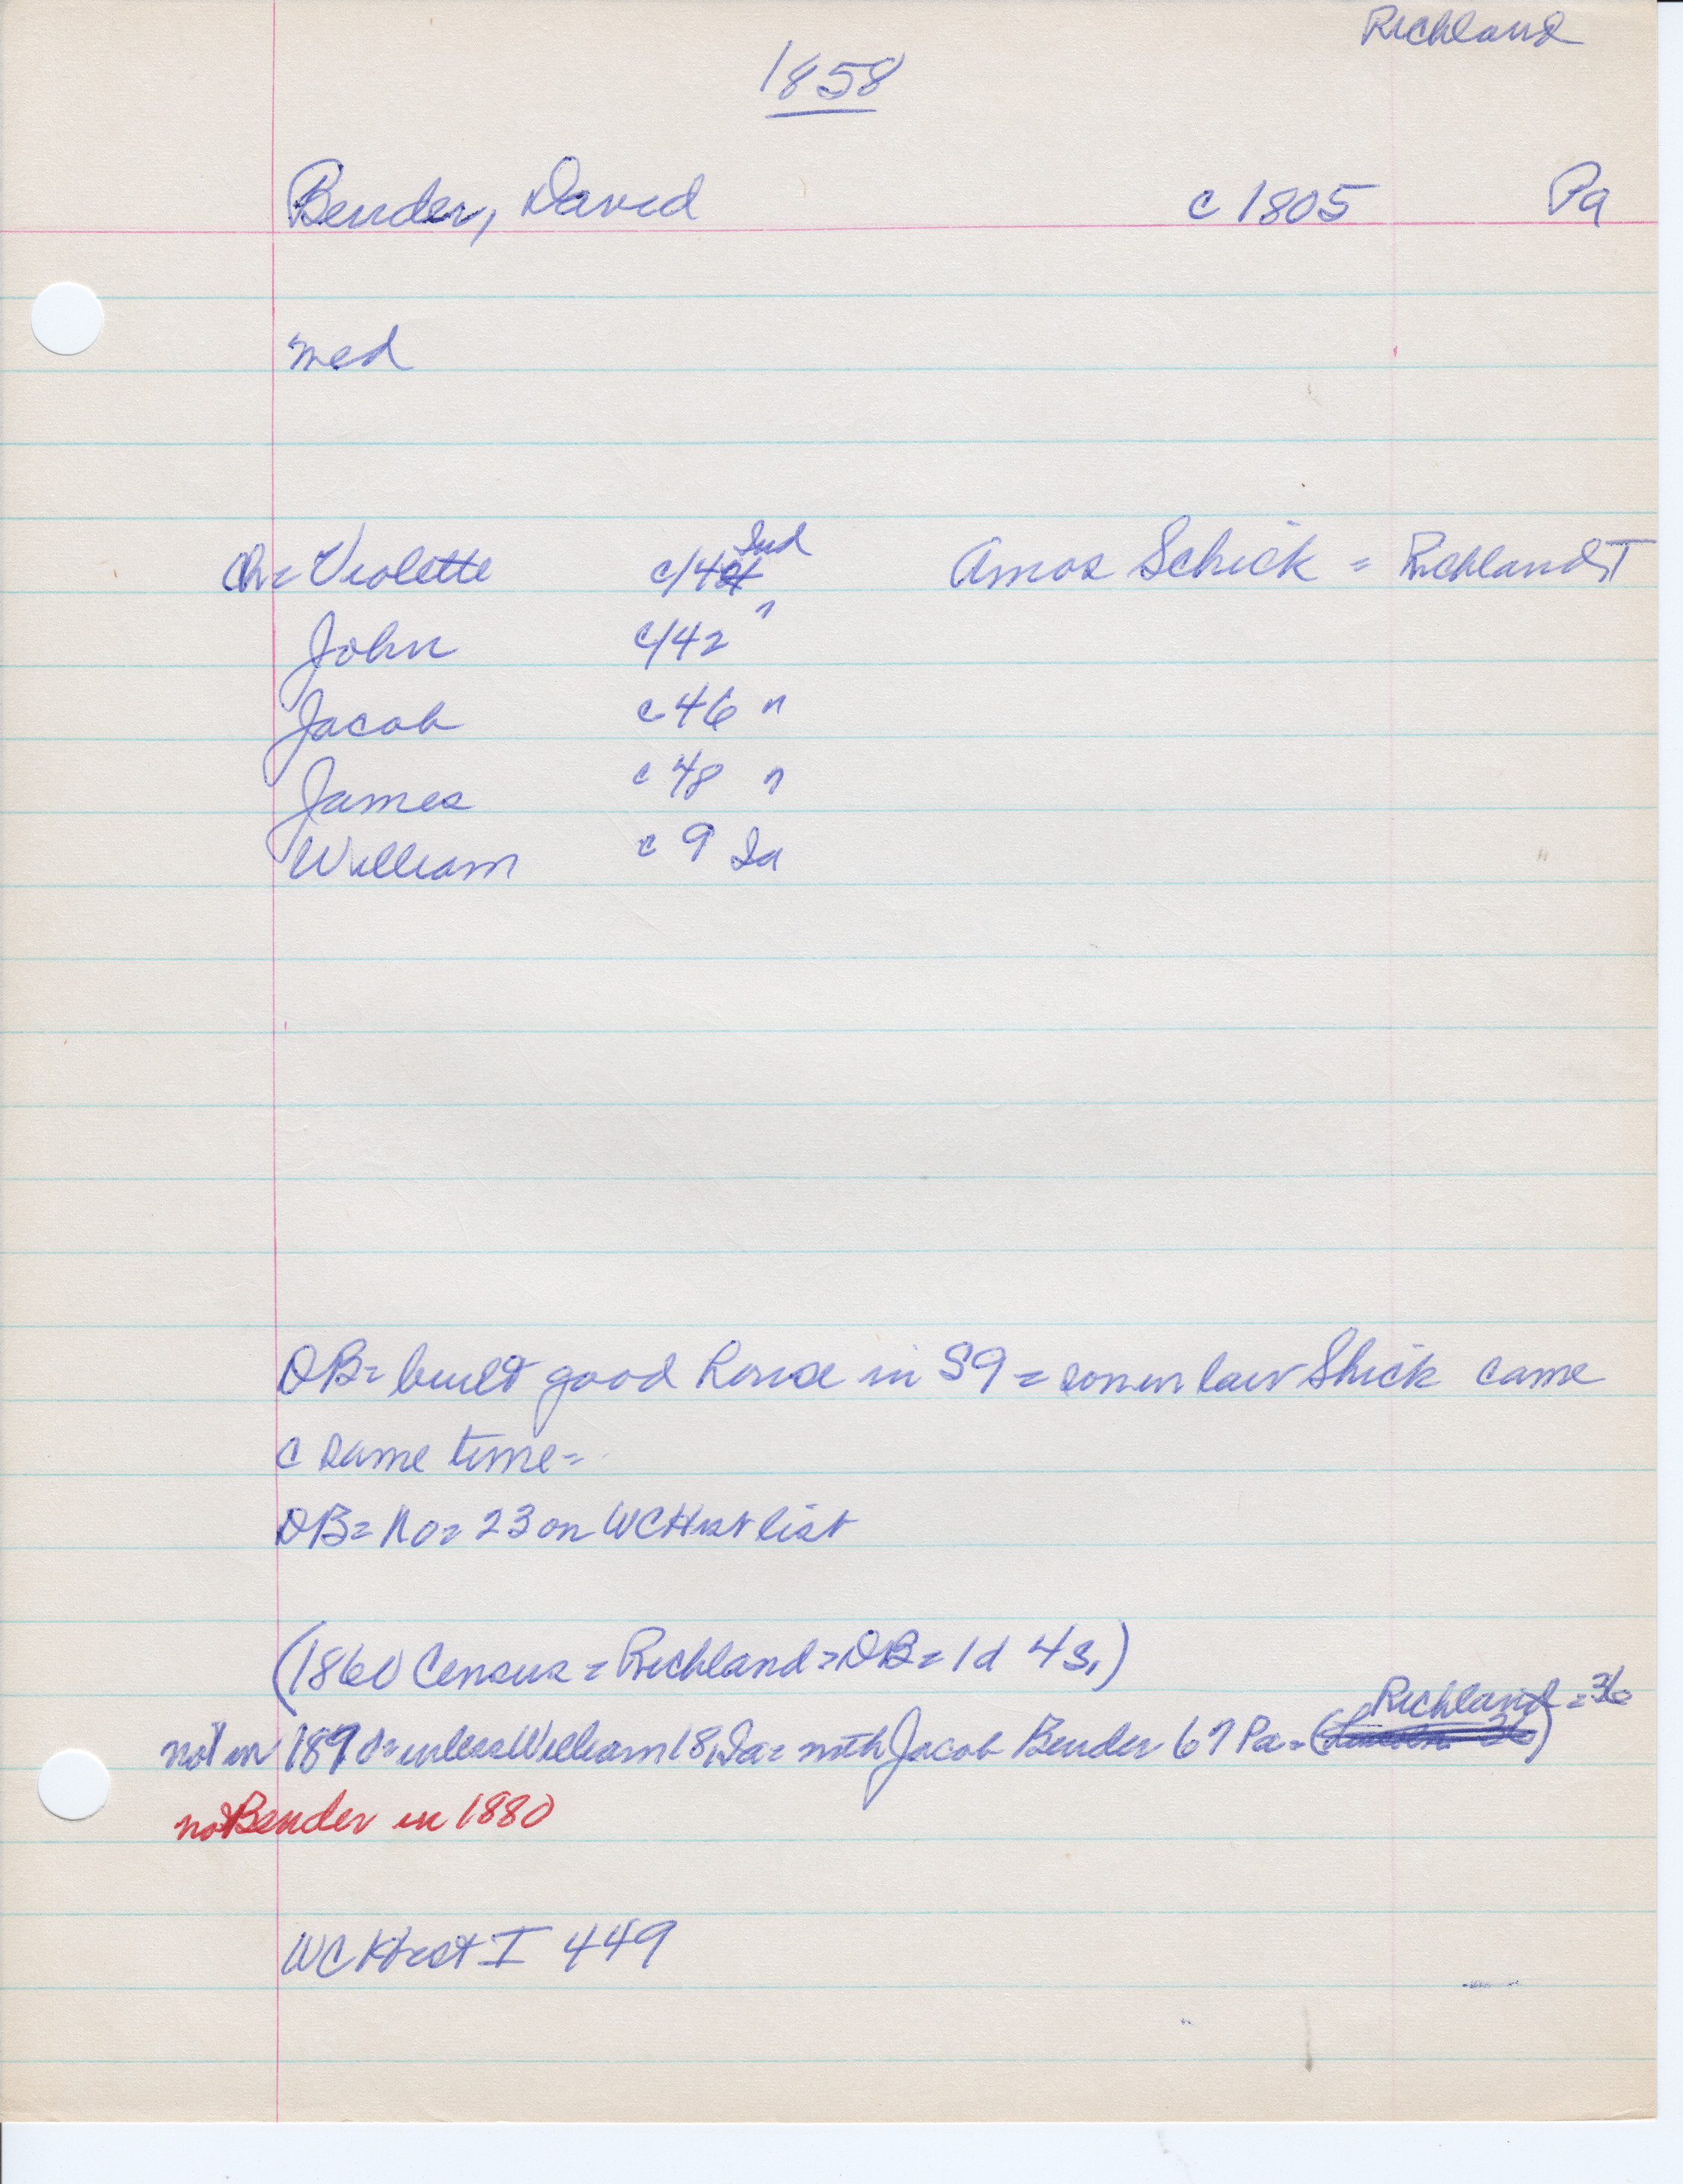 Richland
1858
Bender, David c 1805 Pa
med
Ch = Violette c/42 Ind Amos Schick = Richland T
John c/42 "
Jacob c 46 "
James c 48 "
William c 9 Ia
DB = built good house in S9 = son in law Shick came
c same time =
DB = No = 23 on WCHist list
(1860 Census = Richland = DB = 1d 4s.)
Richland = 36
not in 1870 = unless William 18, Ia = with Jacob Bender 67 Pa =
no Bender in 1880
WC Hist I 449